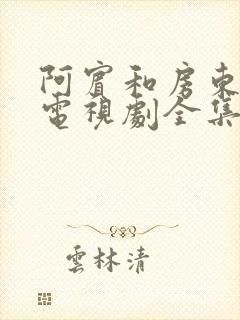 阿賓和房東
電視劇全集
雲林清